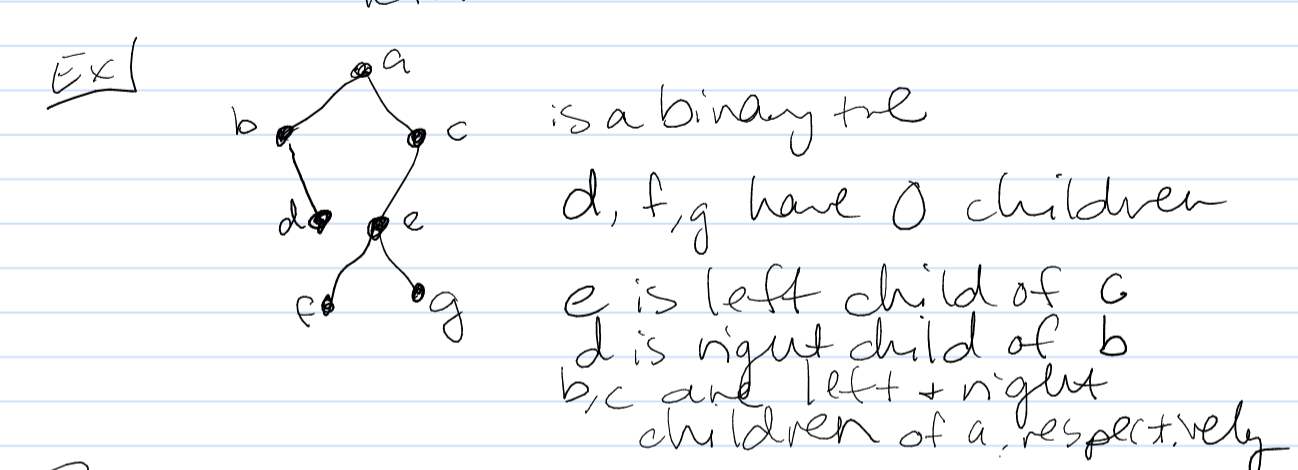 Ex
a
b
c
is a binary tree
d
e
d, f, g have 0 children
f
g
e is left child of c
d is right child of b
b, c are left + right
children of a, respectively